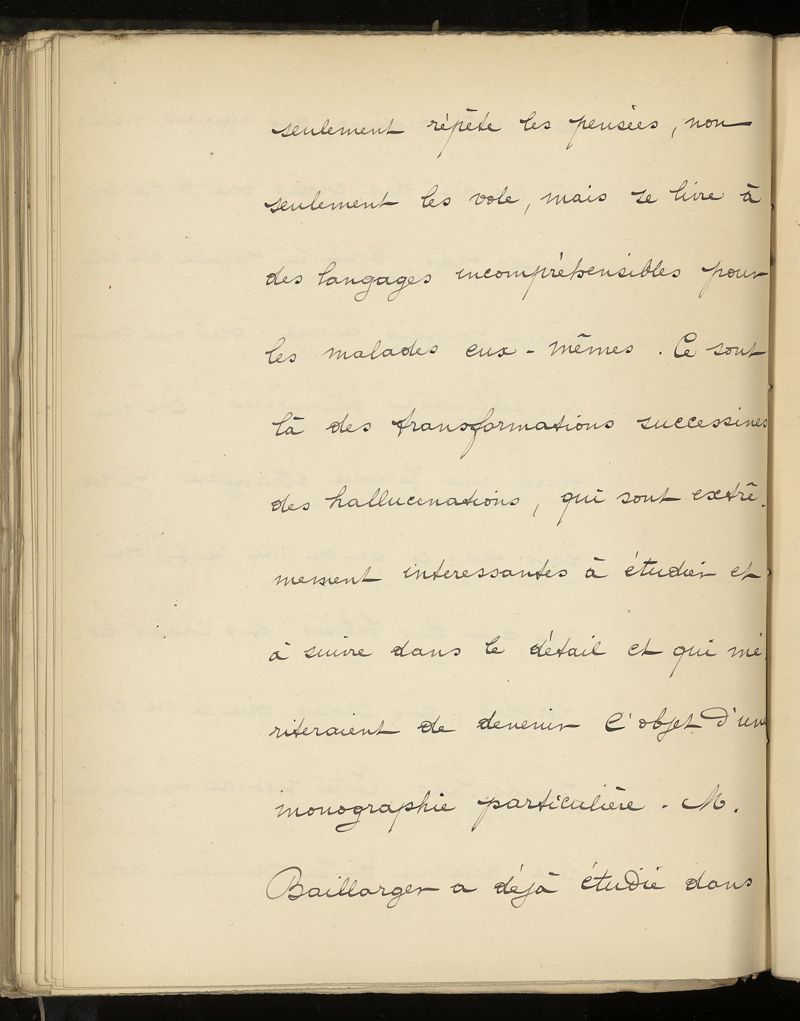 seulement répète les pensées, non
seulement les vole, mais se livre à
des langages incompréhensibles pour
les malades eux-mêmes. Ce sont
là des transformations successives
des hallucinations, qui sont extrê-
mement interessantes à étudier et
à suivre dans le détail et qui mé-
riteraient de devenir l'objet d'une
monographie particulière. M.
Baillarger a déjà étudié dans